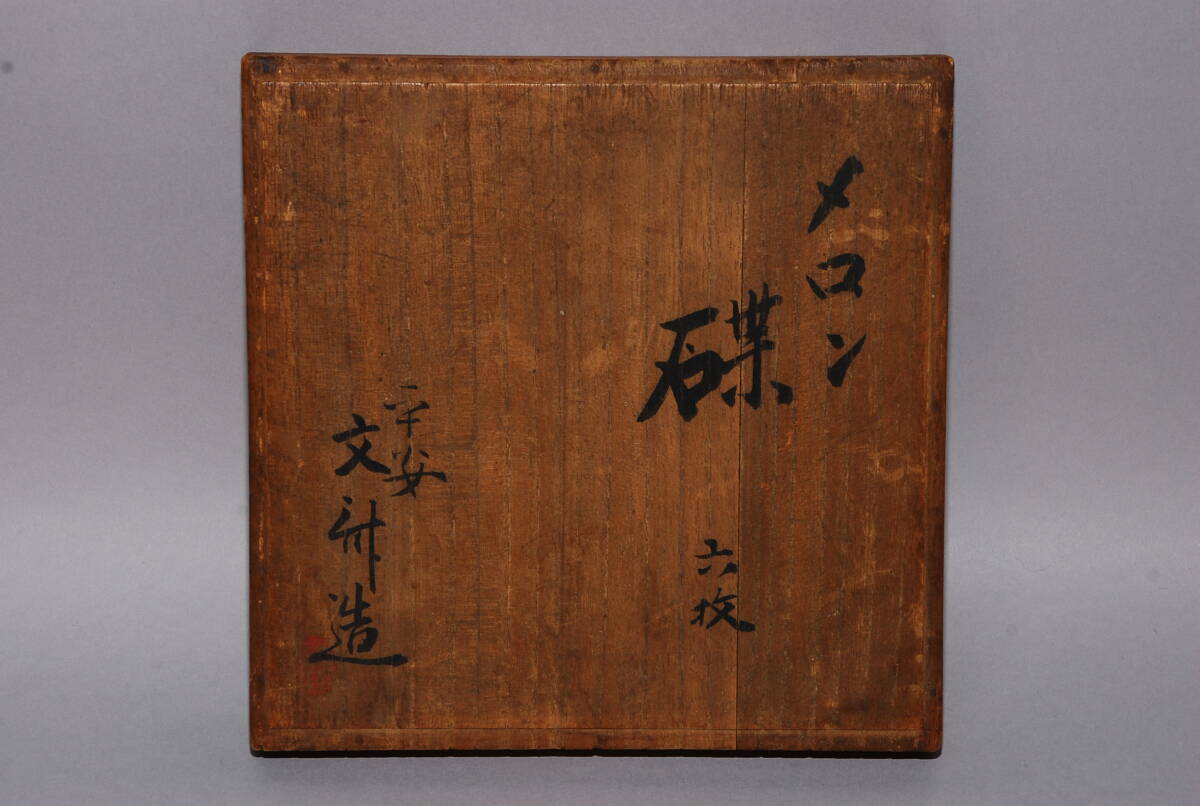 メロン
碟
六枚
平安
文斎造